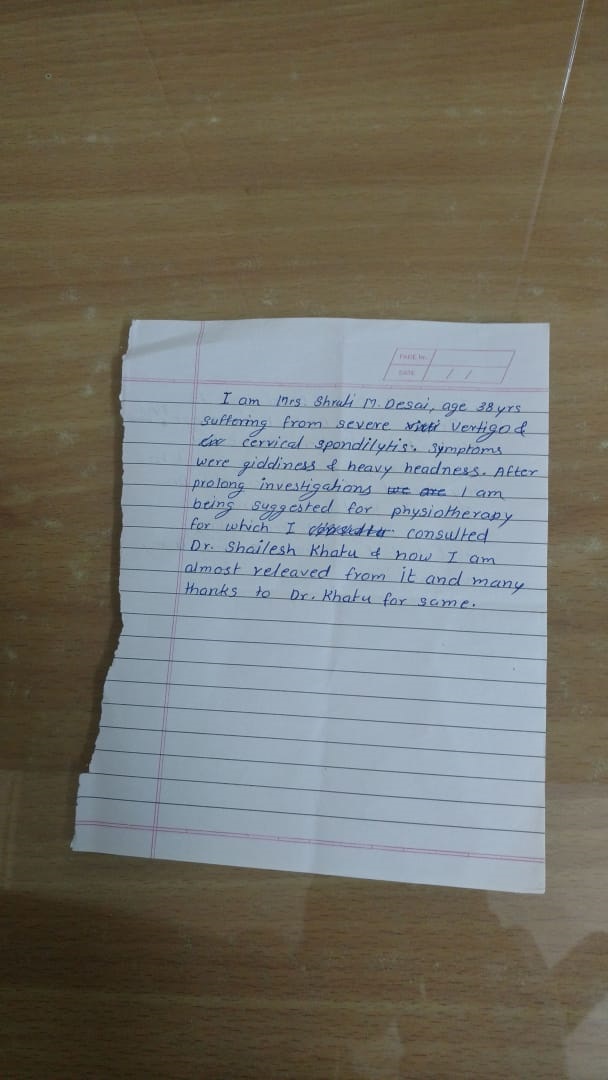 PAGE No.
DATE / /
I am Mrs. Shrali M. Desai, age 38 yrs
suffering from severe Vertigo &
cervical spondilytis. Symptoms
were giddiness & heavy headness. After
prolong investigations we are I am
being suggested for physiotherapy
for which I consulted
Dr. Shailesh Khatu & now I am
almost releaved from it and many
thanks to Dr. Khatu for same.